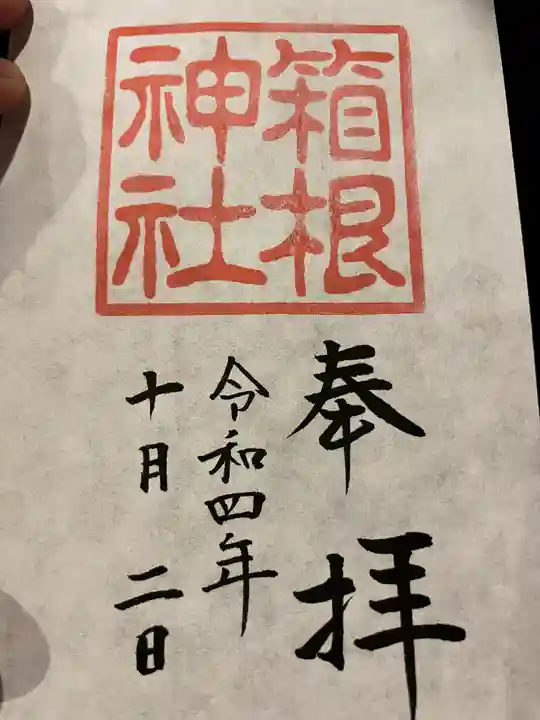 箱根
神社
奉拝
令和四年
十月二日